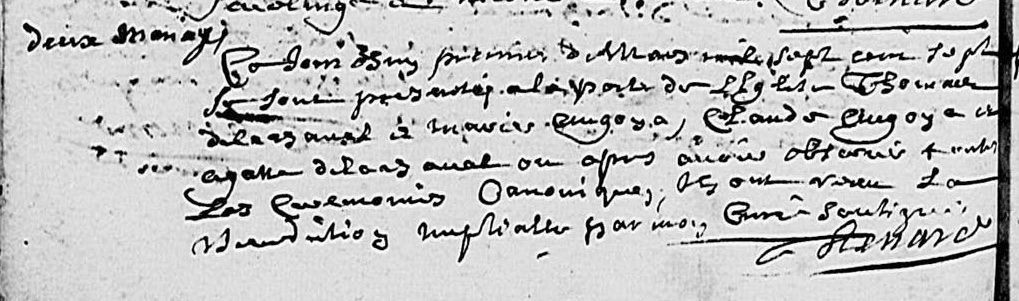 deux Mariages
Ce Jourdhuy premier de Mars mil sept cent sept
se sont presentés a la porte de L'Eglise Thomas
delarsaval et Marie Cugoya, Claude Cugoya et
agatte delarsaval ou apres avoir observé toutes
Les Ceremonies Canoniques, Ils ont receu La
Benediction nuptialle par moy Curé soussigné
Renard